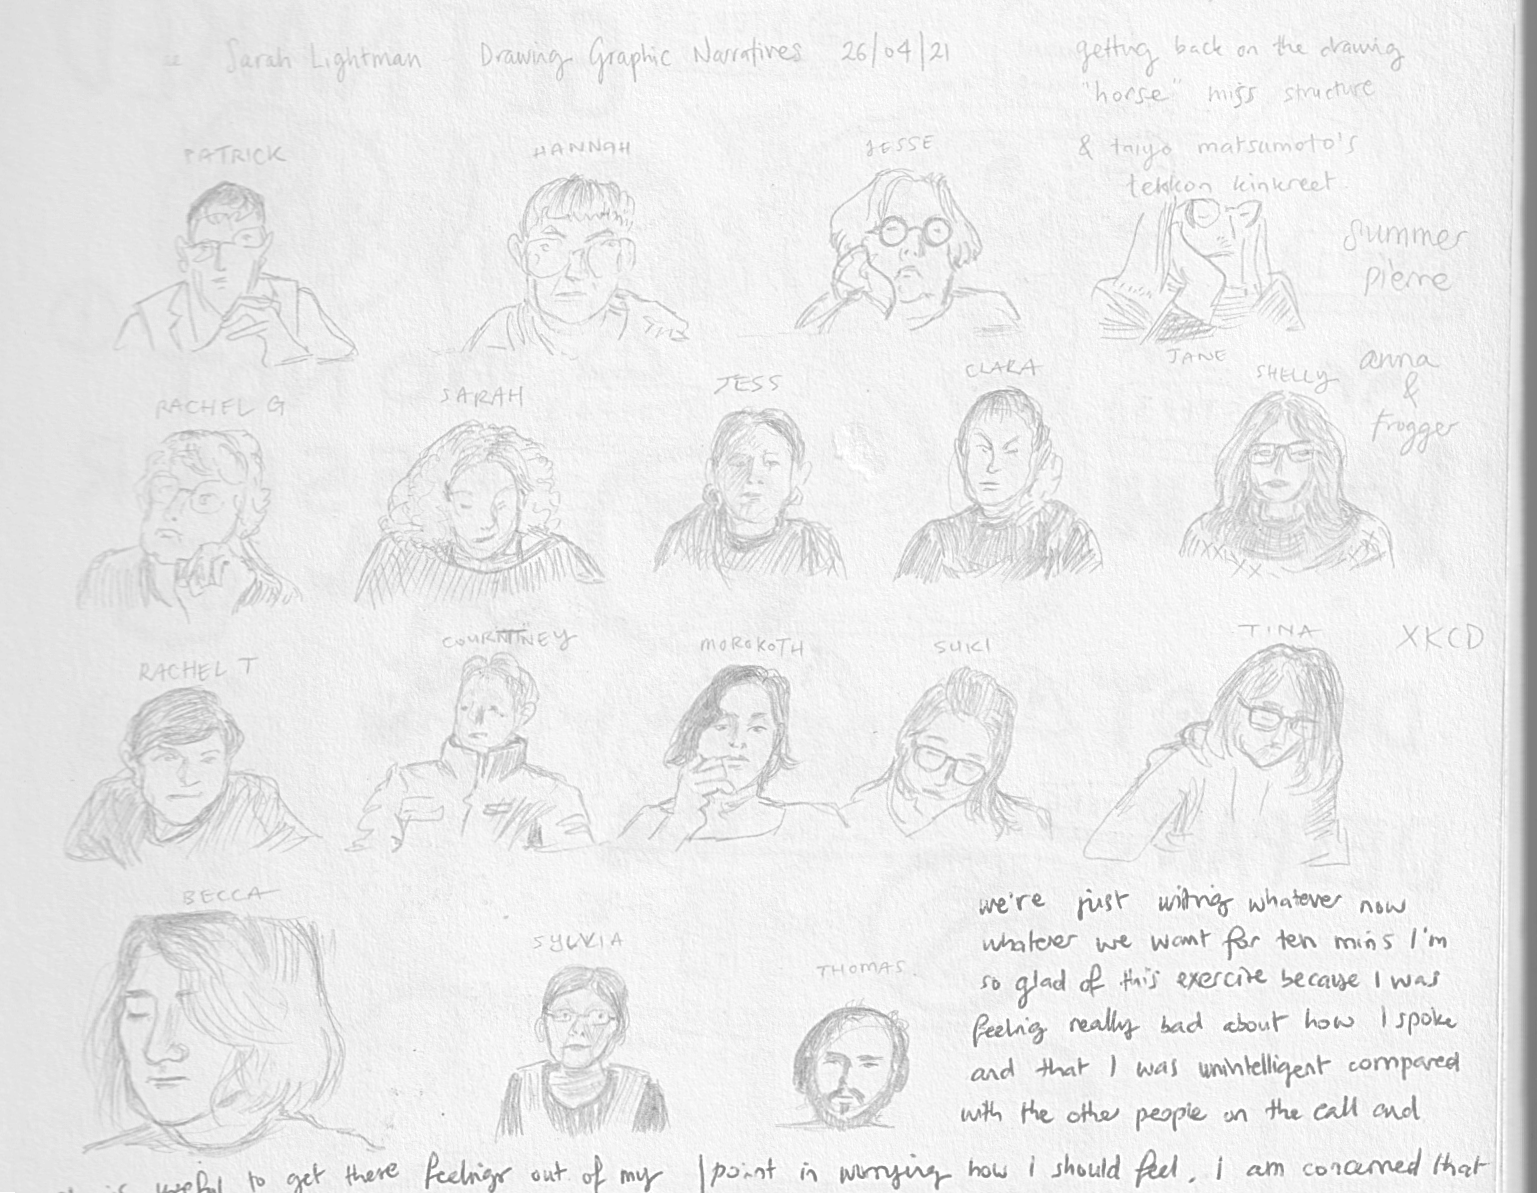 Sarah Lightman Drawing Graphic Narratives 26/04/21
getting back on the drawing
"horse" miss structure
& taiyo matsumoto's
tekkon kinkreet
PATRICK
HANNAH
JESSE
summer
pierre
JANE
RACHEL G
SARAH
JESS
CLARA
SHELLY
anna
&
frogger
RACHEL T
COURTNEY
MOROKOTH
SUKI
TINA
XKCD
BECCA
SYLVIA
THOMAS
we're just writing whatever now
whatever we want for ten mins I'm
so glad of this exercise because I was
feeling really bad about how I spoke
and that I was unintelligent compared
with the other people on the call and
useful to get there feelings out of my
point in worrying how i should feel. i am concerned that